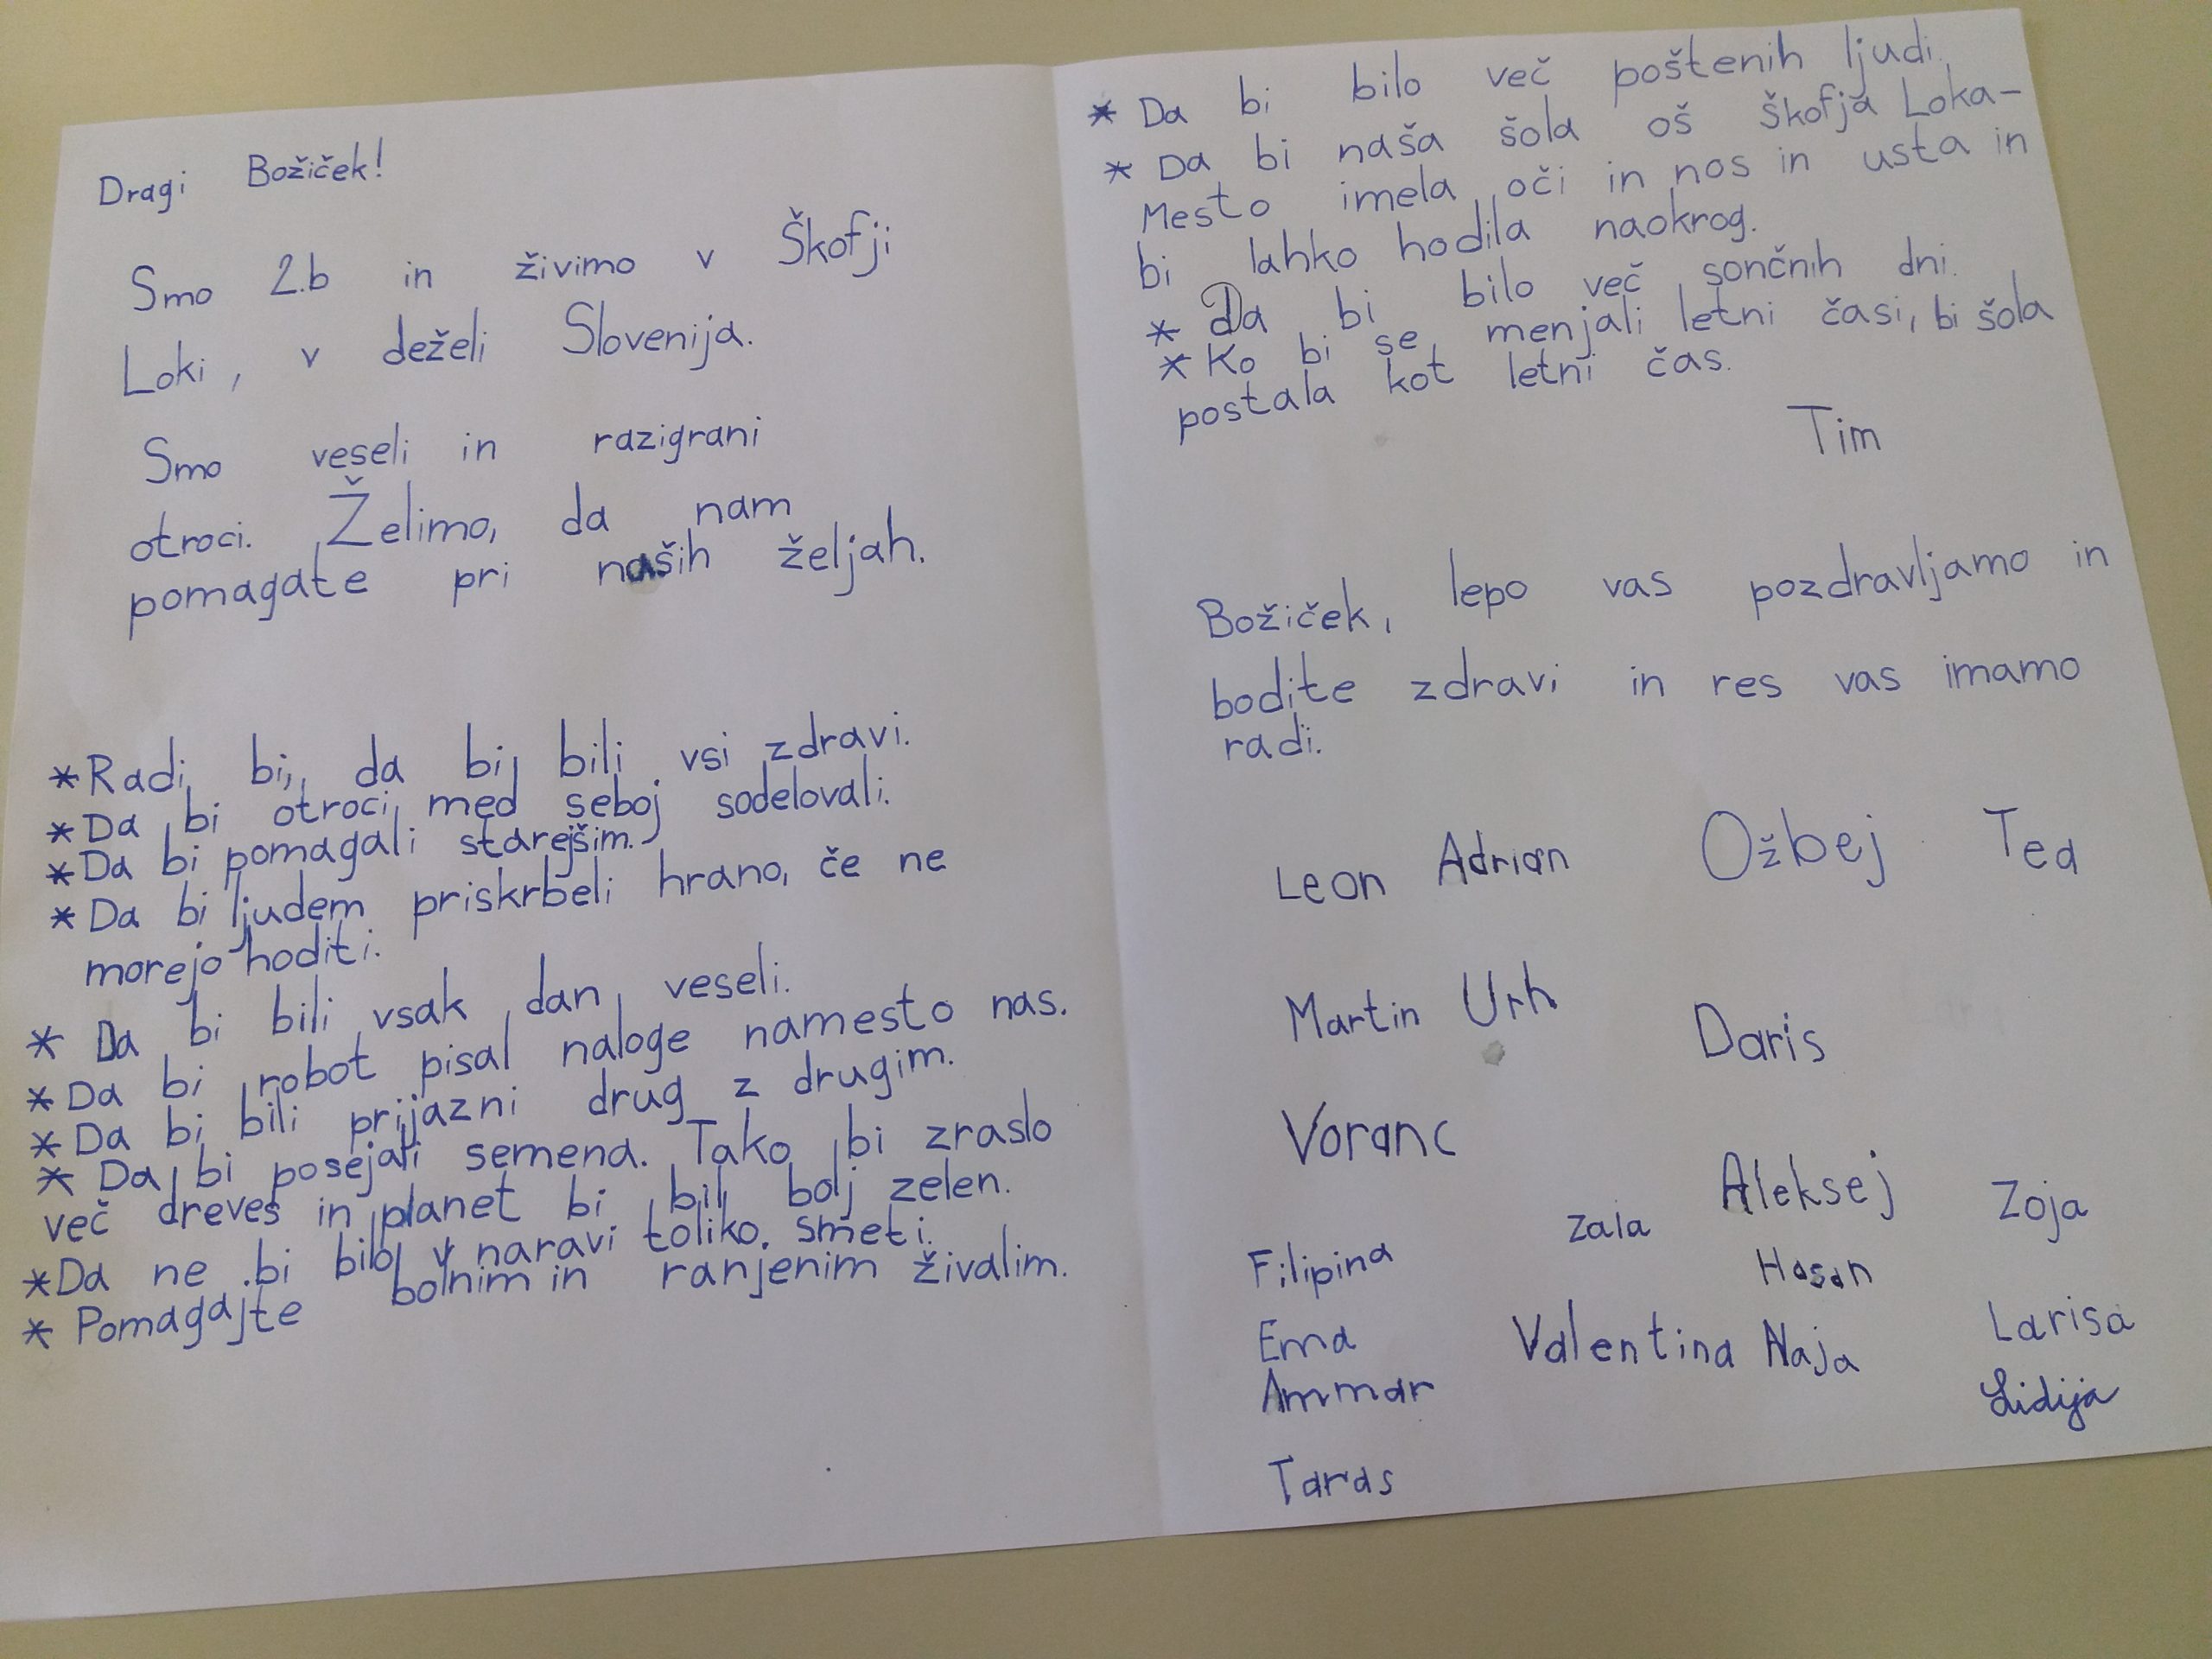 Dragi Božiček!
Smo 2.b in živimo v Škofji
Loki, v deželi Slovenija.
Smo veseli in razigrani
otroci. Želimo, da nam
pomagate pri naših željah.
*Radi bi, da bi bili vsi zdravi.
*Da bi otroci med seboj sodelovali.
*Da bi pomagali starejšim.
*Da bi ljudem priskrbeli hrano, če ne
morejo hoditi.
* Da bi bili vsak dan veseli.
*Da bi robot pisal naloge namesto nas.
*Da bi bili prijazni drug z drugim.
* Da bi posejali semena. Tako bi zraslo
več dreves in planet bi bil bolj zelen.
*Da ne bi bilo v naravi toliko smeti.
* Pomagajte bolnim in ranjenim živalim.
* Da bi bilo več poštenih ljudi.
* Da bi naša šola oš Škofja Loka-
Mesto imela oči in nos in usta in
bi lahko hodila naokrog.
* Da bi bilo več sončnih dni.
* Ko bi se menjali letni časi, bi šola
postala kot letni čas.
Tim
Božiček, lepo vas pozdravljamo in
bodite zdravi in res vas imamo
radi.
Leon Adrian Ožbej Tea
Martin Urh Daris
Voranc
Filipina Zala Aleksej Zoja
Hasan
Ema Valentina Naja Larisa
Ammar Lidija
Taras